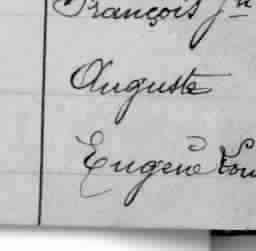 François Jn
Auguste
Eugène Lou